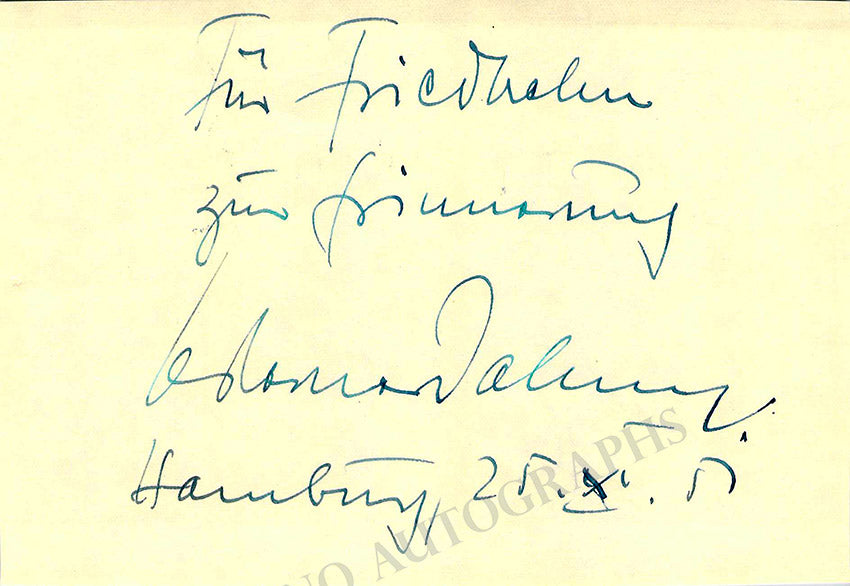 Für Friedhelm
zur Erinnerung
Hamburg, 25. XI. 51
NO AUTOGRAPHS